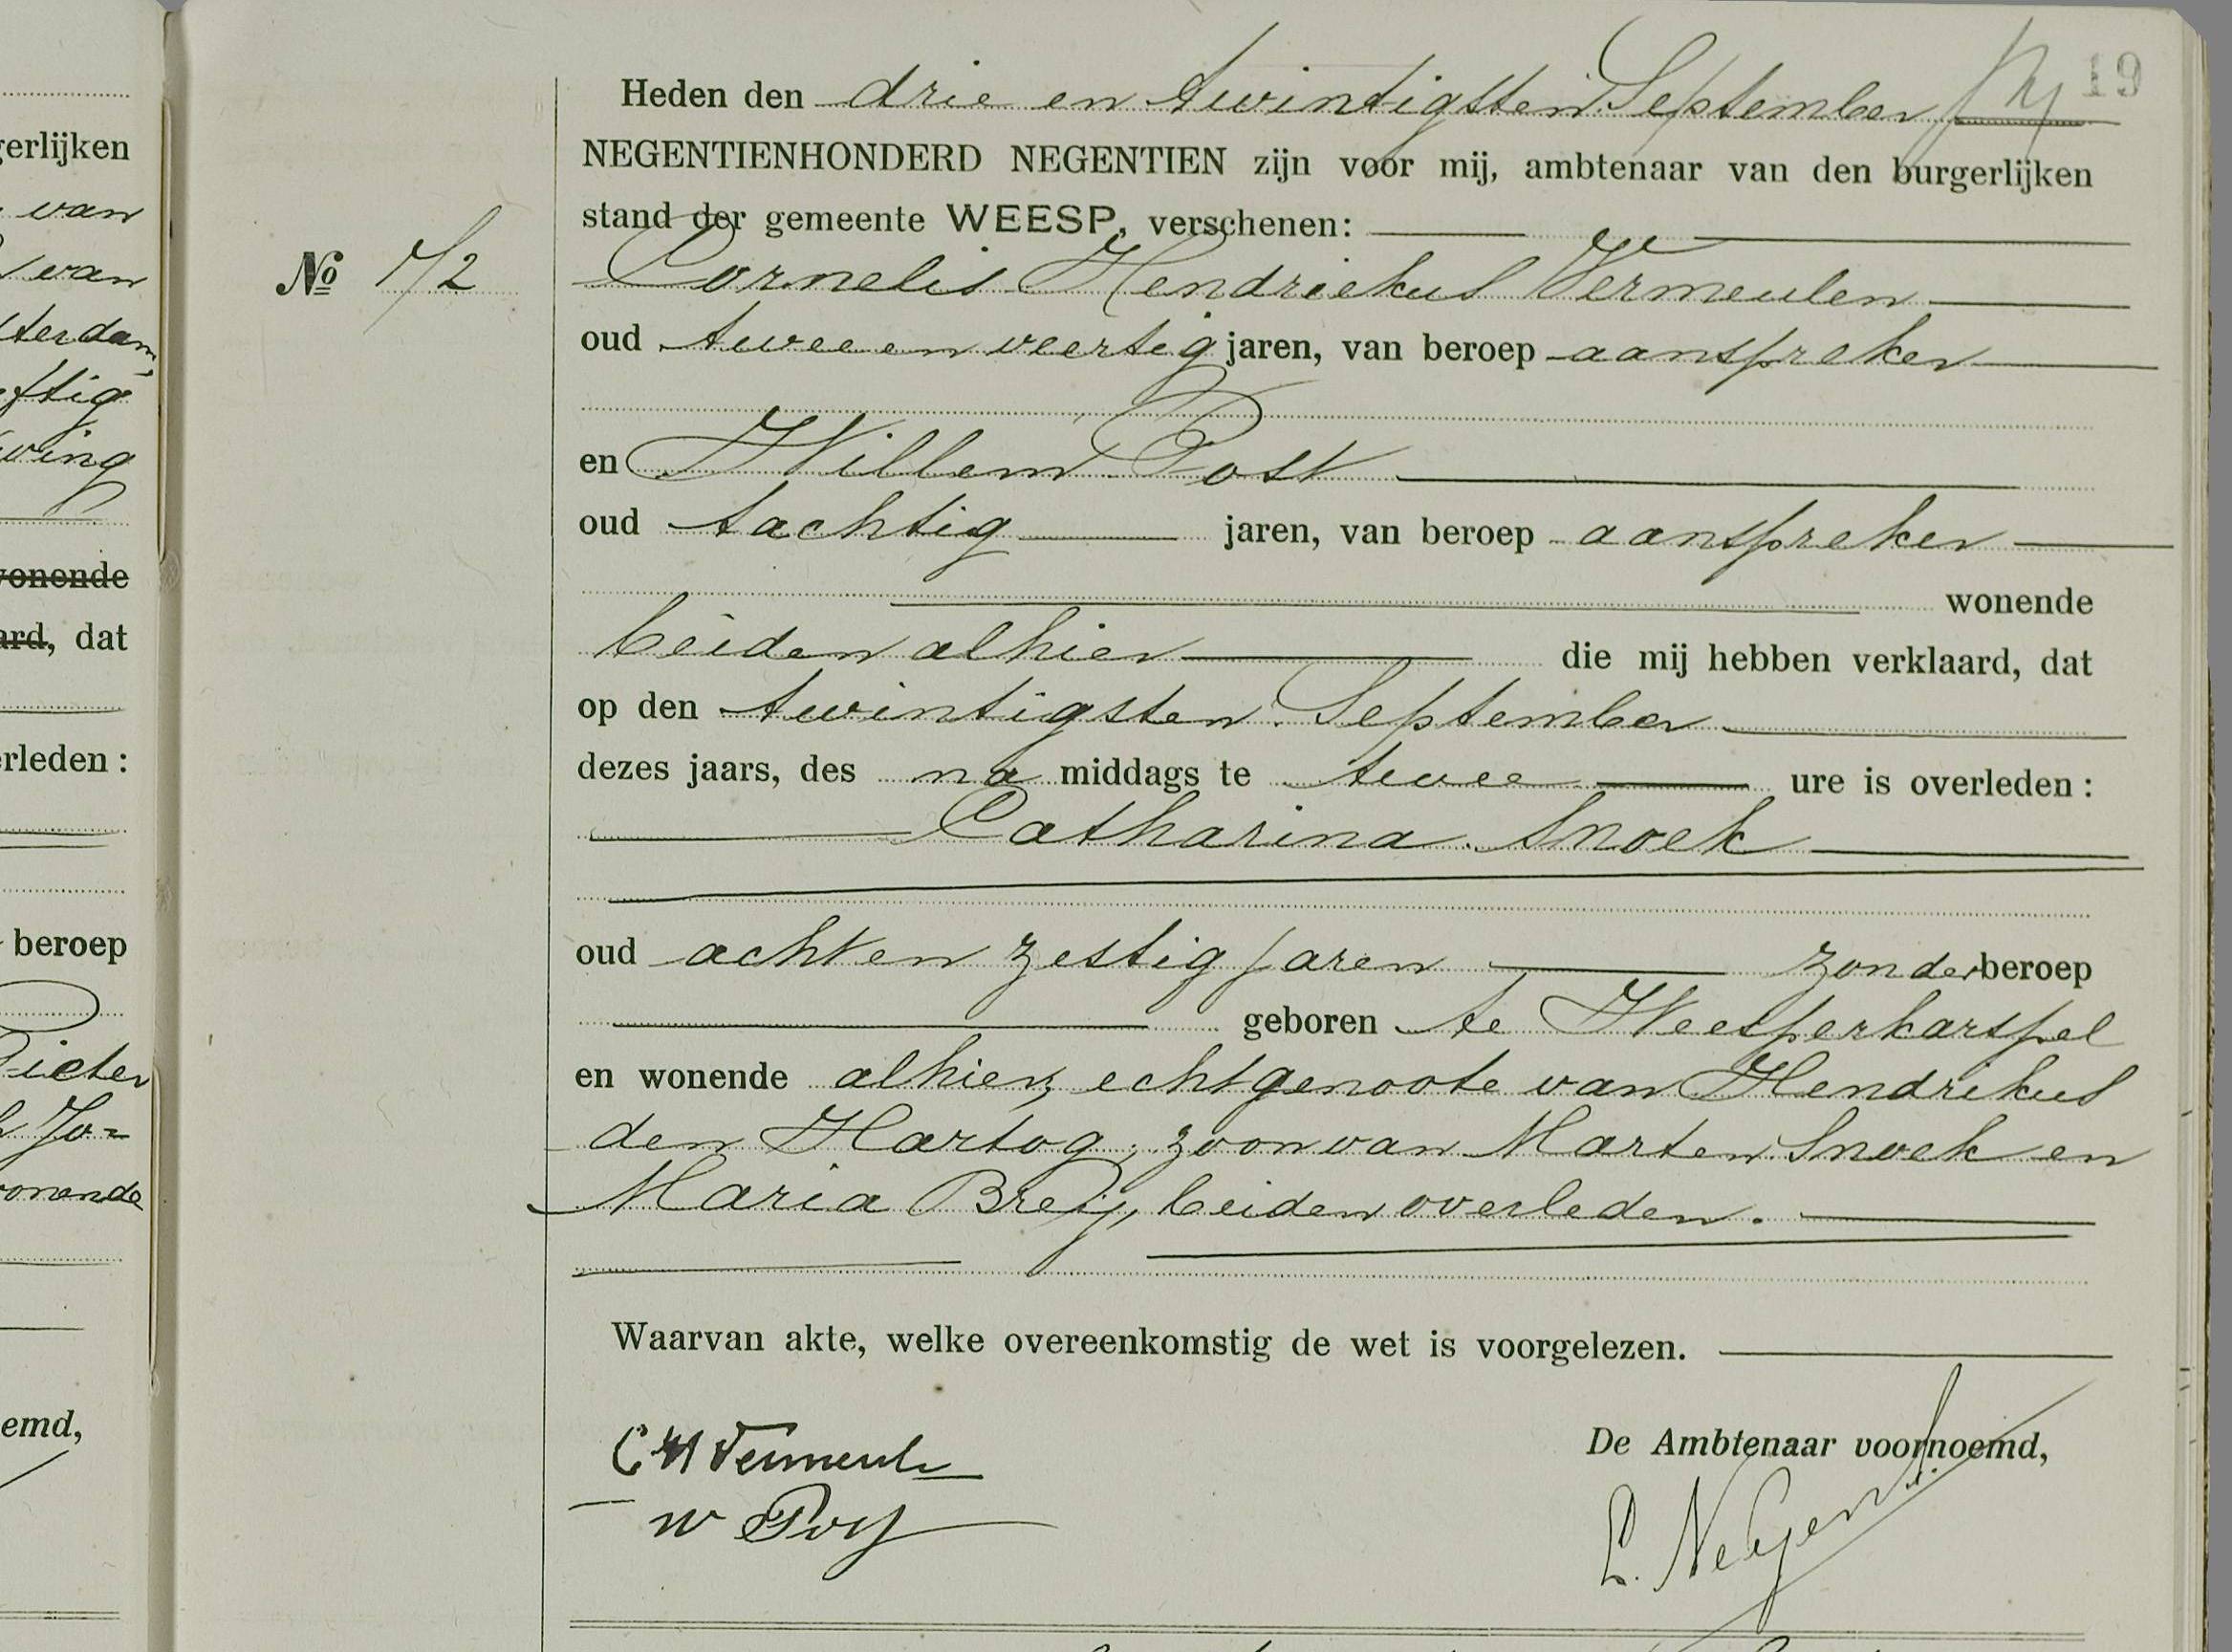 19
Heden den drie en twintigsten September
NEGENTIENHONDERD NEGENTIEN zijn voor mij, ambtenaar van den burgerlijken
stand der gemeente WEESP, verschenen:
No 72 Cornelis Hendriekus Vermeulen
oud twee en veertig jaren, van beroep aanspreker
en Willem Post
oud tachtig jaren, van beroep aanspreker
wonende
beiden alhier die mij hebben verklaard, dat
op den twintigsten September
dezes jaars, des na middags te twee ure is overleden:
Catharina Snoek
oud acht en zestig jaren zonder beroep
geboren te Weesperkarspel
en wonende alhier, echtgenoote van Hendrikus
den Hartog, zoon van Marten Snoek en
Maria Breij, beiden overleden.
Waarvan akte, welke overeenkomstig de wet is voorgelezen.
De Ambtenaar voornoemd,
C H Vermeulen
W Post
gerlijken
van
van
terdam,
ftig
wing
wonende
ard, dat
erleden:
beroep
Pieter
Jo=
wonende
emd,